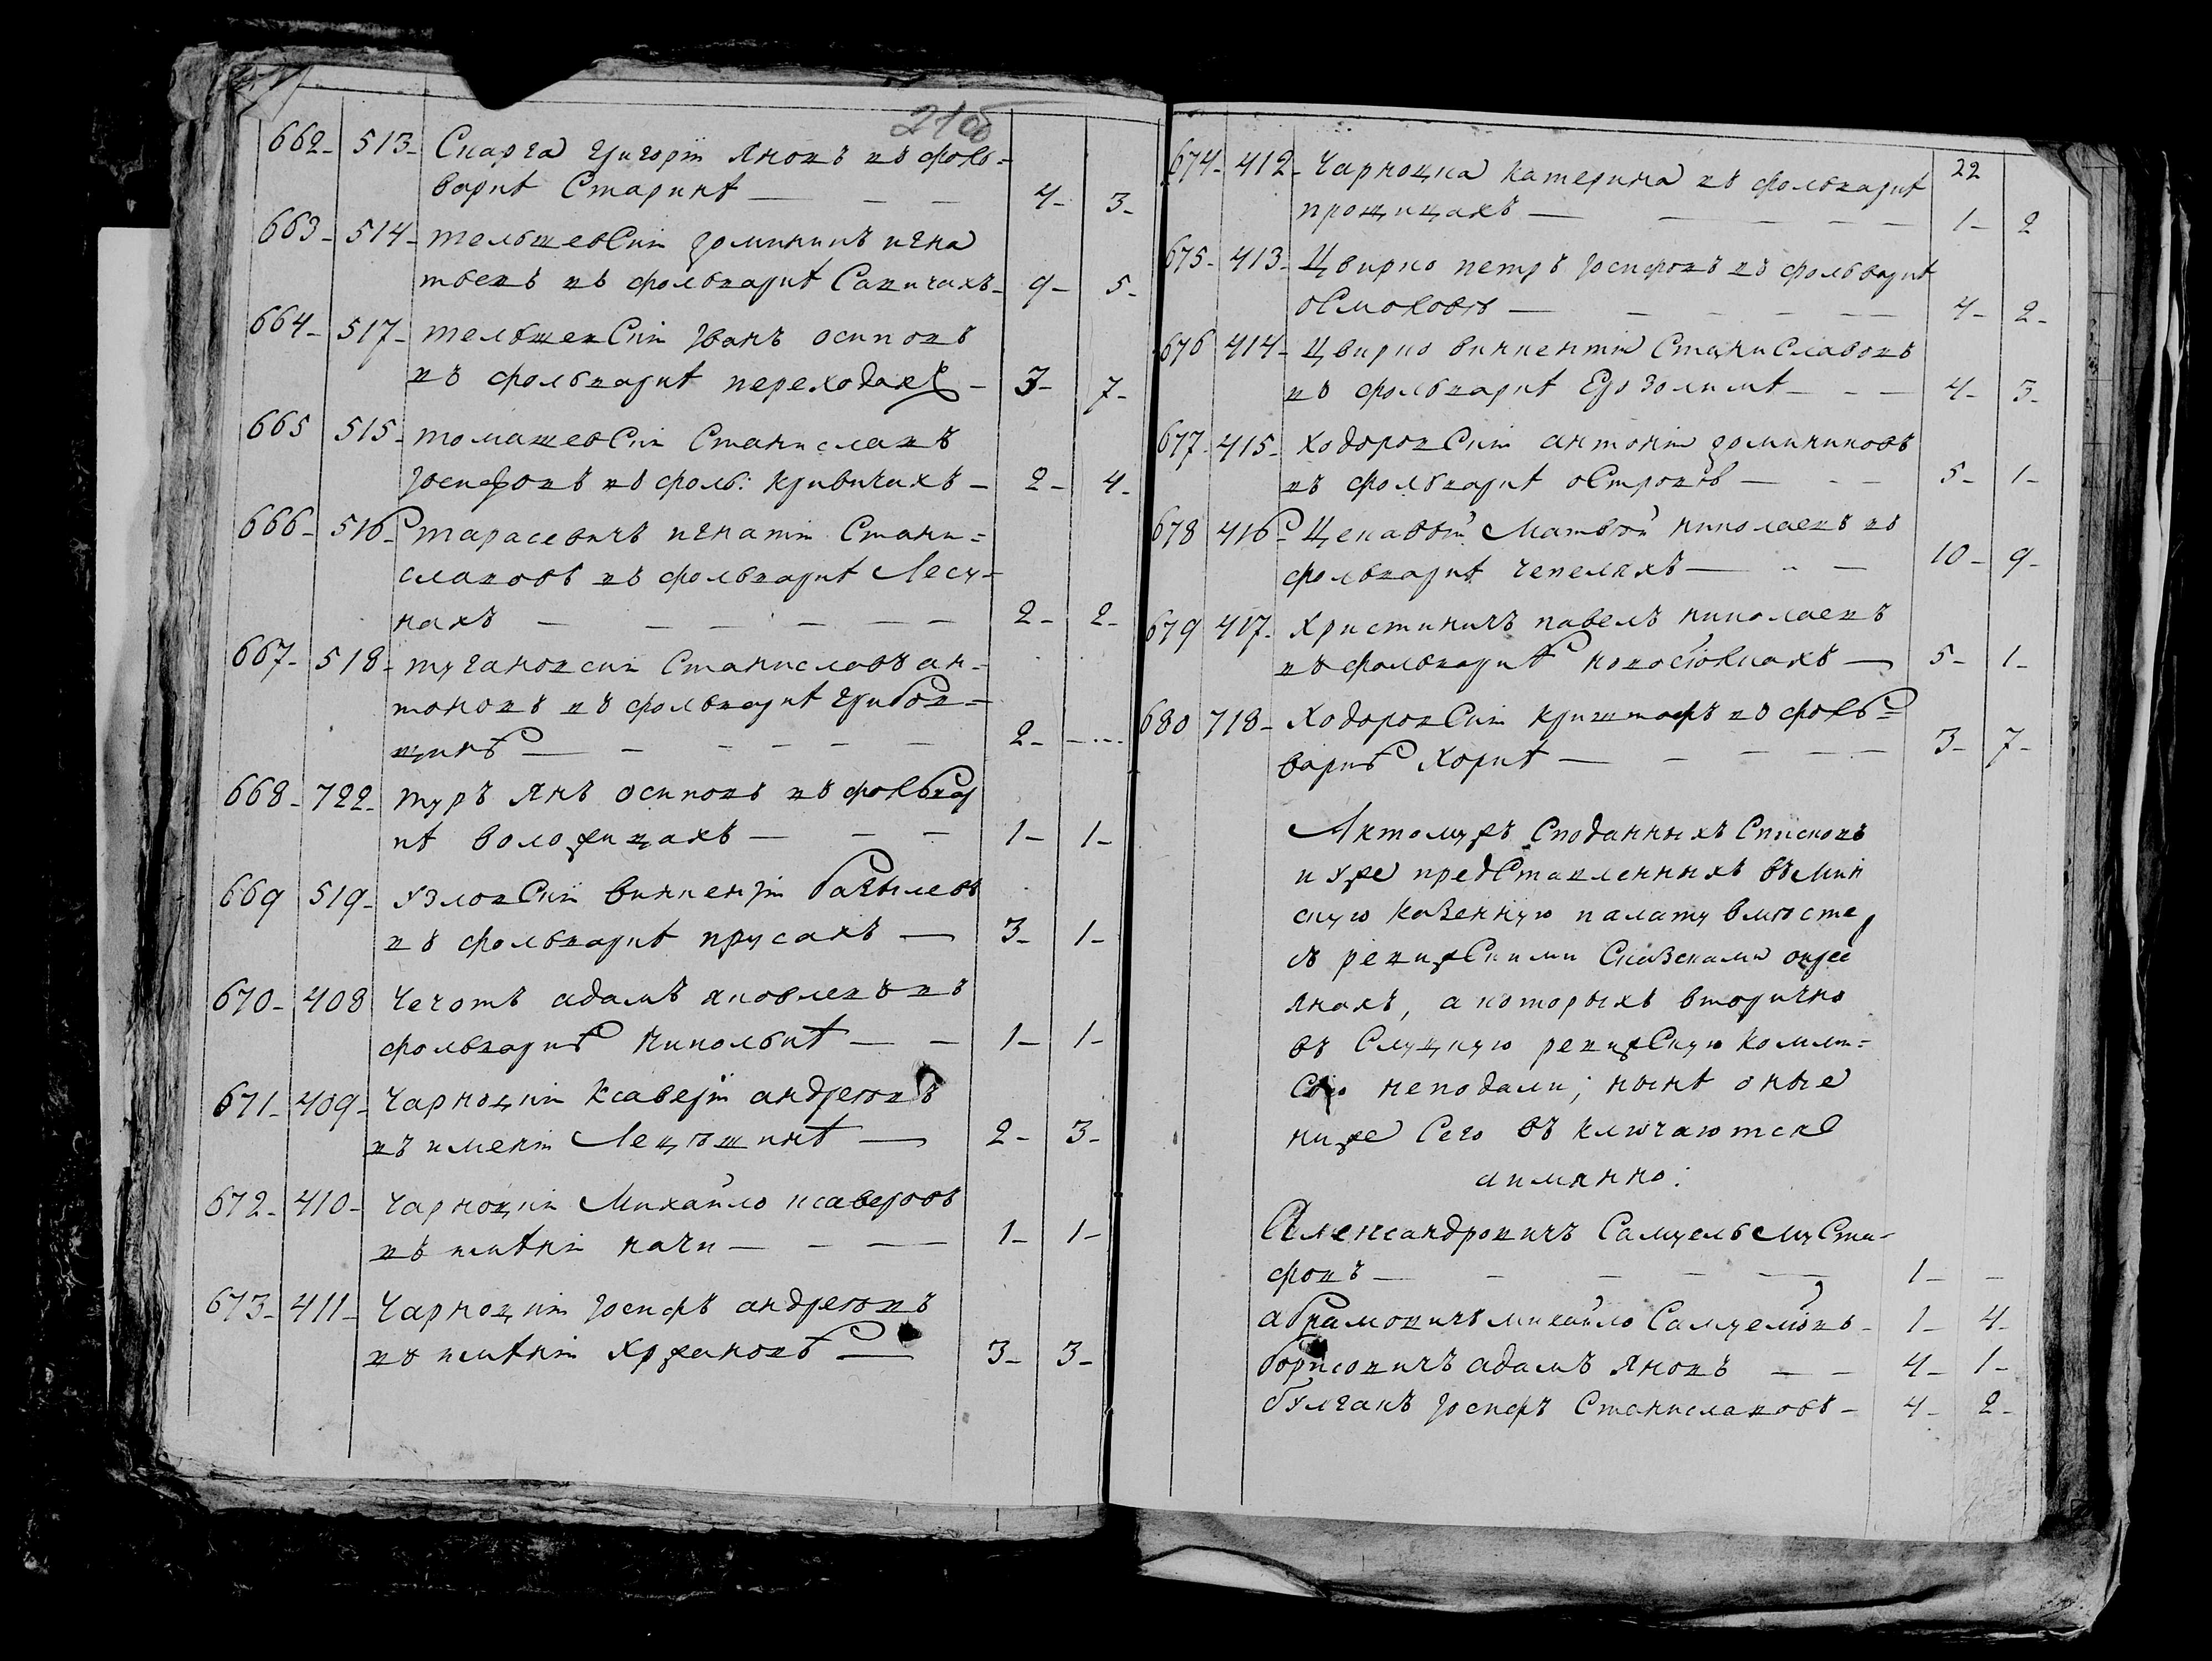 21об
662 - 513 - Скарга Григорій Яновъ въ фоль=
варкѣ Старинѣ — 4 - 3 -
663 - 514 - тельшевскій доминикъ игна
тьевъ въ фольваркѣ Саничахъ - 9 - 5 -
664 - 517 - тельшевскій Иванъ осиповъ
въ фольваркѣ переходахъ - 3 - 7 -
665 515 - томашевскій Станиславъ
Іосифовъ въ фоль: кривичахъ - 2 - 4 -
666 - 516 - тарасевичъ игнатій Стани=
славовъ въ фольваркѣ Лесу-
нахъ — 2 - 2 -
667 - 518 - тугановскій Станиславъ ан-
тоновъ въ фольваркѣ грибов=
щинѣ — 2 - - ...
668 - 722 - туръ Янъ осиповъ въ фольвар
кѣ воложицахъ — 1 - 1 -
669 519 - узловскій винцентій
въ фольваркѣ прусахъ — 3 - 1 -
670 - 408 Чечотъ адамъ яковлевъ въ
фольваркѣ Никольскѣ — 1 - 1 -
671 - 409 - Чарноцкій Ксаверій андреювъ
въ имѣніи Лецѣшинѣ — 2 - 3 -
672 - 410 - Чарноцкій Михайло ксаверовъ
въ имѣніи начи — 1 - 1 -
673 - 411 - Чарноцкій Іосифъ андреювъ
въ имѣніи Хржановѣ — 3 - 3 -
22
674 - 412 - Чарноцка катерина въ фольваркѣ
прощицахъ — 1 - 2
675 - 413 - Цвирко петръ Іосифовъ въ фольваркѣ
осмоловѣ — 4 - 2 -
676 414 - Цвирко винцентій Станиславовъ
въ фольваркѣ Ерозолимѣ — 4 - 3 -
677 - 415 - ходоровскій антоній доминиковъ
въ фольваркѣ островѣ — 5 - 1 -
678 416 - Цекавый Матвѣй николаевъ въ
фольваркѣ чепеляхъ — 10 - 9 -
679 417 - Христиничъ павелъ николаевъ
въ фольваркѣ новосіолкахъ — 5 - 1 -
680 718 - Ходоровскій криштофъ въ фоль=
варкѣ Хоркѣ — 3 - 7 -
Актомужъ споданныхъ списковъ
и уже представленныхъ въ мин
скую казенную палату вмѣсте,
съ ревижскими сказками о
янахъ, а которыхъ вторично
въ слуцкую ревижскую коммі=
сію неподали; нынѣ оные
ниже сего въ ключаются
аимянно:
Александровичъ Самуель мустa-
фовъ — 1 - -
абрамовичъ михайло Самуеліовъ - 1 - 4 -
борисовичъ адамъ Яновъ — 4 - 1 -
булгакъ Іосифъ Станиславовъ - 4 - 2 -